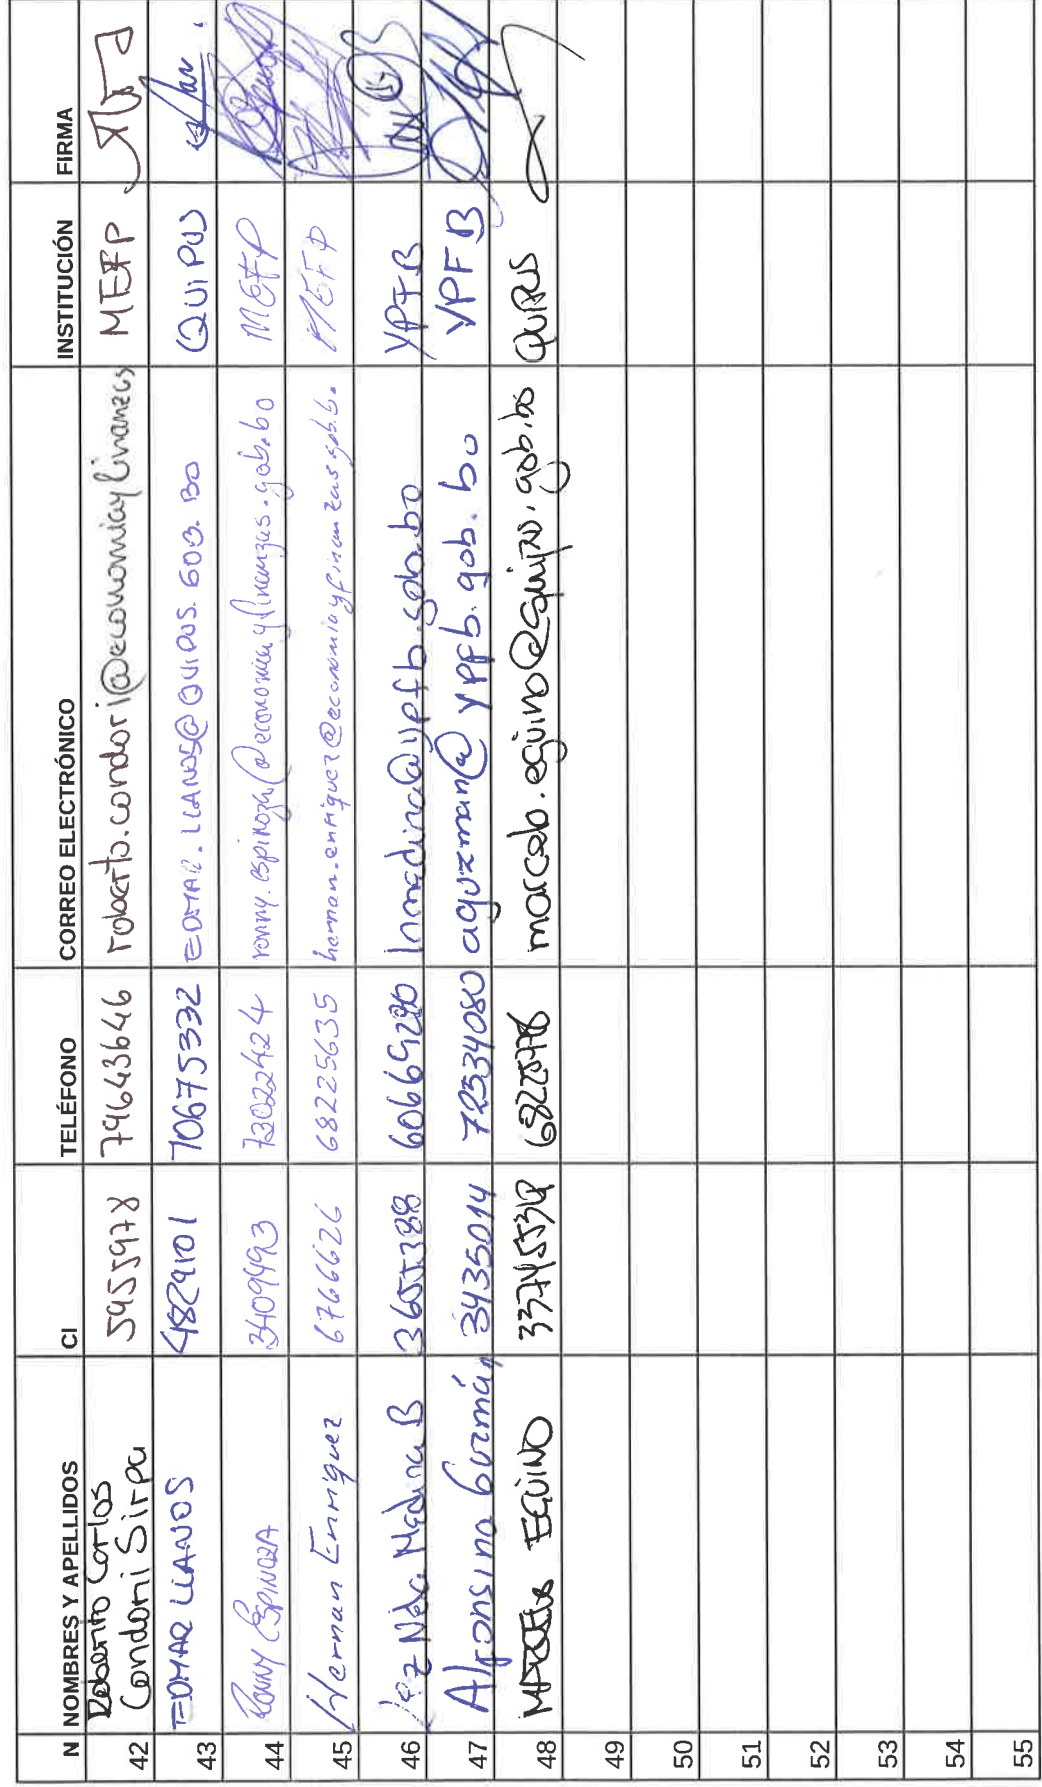 N NOMBRES Y APELLIDOS CI TELÉFONO CORREO ELECTRÓNICO INSTITUCIÓN FIRMA
42 Roberto Carlos
Condori Sirpa 5955978 79643646 roberto.condori@economiayfinanzas MEFP
43 EDMAR LLANOS 4829101 70675332 EDMAR.LLANOS@QUIPUS.GOB.BO QUIPUS
44 RONNY ESPINOZA 3409493 73022424 ronny.espinoza@economiayfinanzas.gob.bo MEFP
45 Hernan Enriquez 6766626 68225635 hernan.enriquez@economiayfinanzas.gob.b. MEFP
46 Medina B 3655388 lnmedina@ypfb.gob.bo YPFB
47 Alfonsina Guzmán 3435014 72534080 aguzman@ypfb.gob.bo YPFB
48 MARCELO EGUINO marcelo.eguino@quipus.gob.bo QUIPUS
49
50
51
52
53
54
55